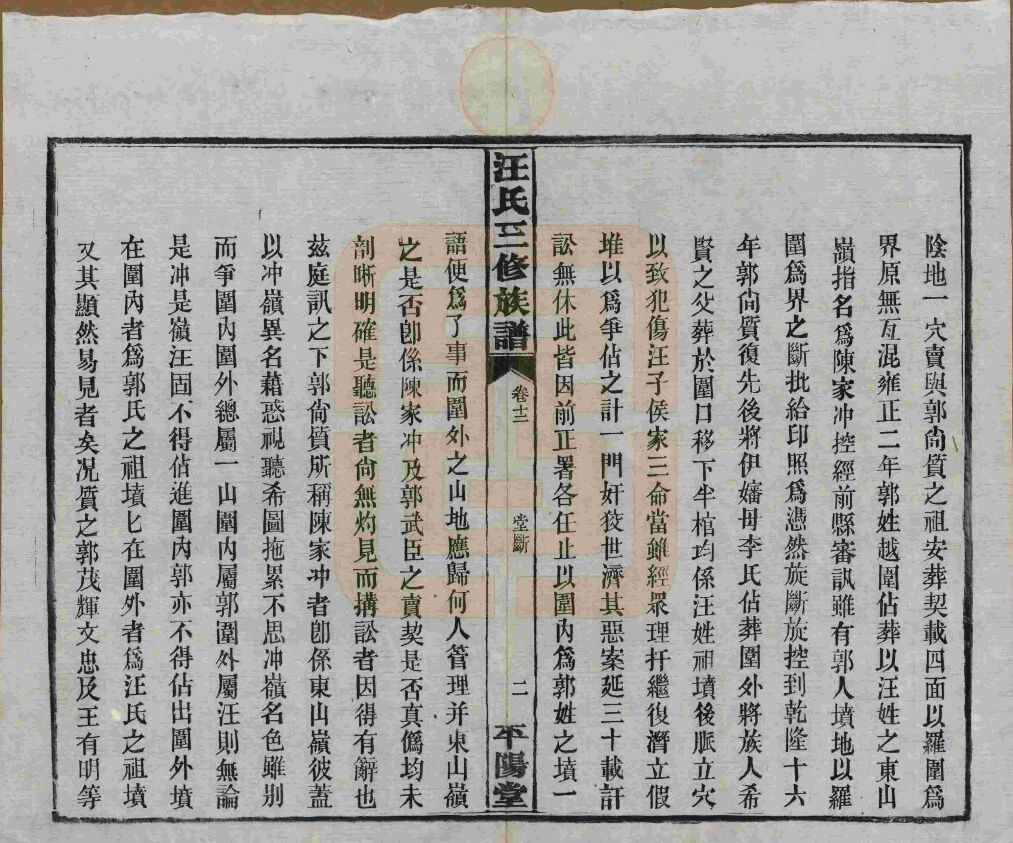 陰地一穴賣與郭尙質之祖安葬契載四面以羅圍爲
界原無亙混雍正二年郭姓越圍佔葬以汪姓之東山
嶺指名爲陳家冲控經前縣審訊雖有郭人墳地以羅
圍爲界之斷批給印照爲憑然旋斷旋控到乾隆十六
年郭尙質復先後將伊嬸母李氏佔葬圍外將族人希
賢之父葬於圍口移下半棺均係汪姓祖墳後脈立穴
以致犯傷汪子侯家三命當雖經眾理扞繼復潛立假
堆以爲爭佔之計一門奸狡世濟其惡案延三十載訐
訟無休此皆因前正署各任止以圍內爲郭姓之墳一
汪氏三修族譜 卷十二 堂斷 二 平陽堂
語便爲了事而圍外之山地應歸何人管理并東山嶺
之是否卽係陳家冲及郭武臣之賣契是否真僞均未
剖晰明確是聽訟者尙無灼見而搆訟者因得有辭也
茲庭訊之下郭尙質所稱陳家冲者卽係東山嶺彼蓋
以冲嶺異名藉惑視聽希圖拖累不思冲嶺名色雖別
而爭圍內圍外總屬一山圍內屬郭圍外屬汪則無論
是冲是嶺汪固不得佔進圍內郭亦不得佔出圍外墳
在圍內者爲郭氏之祖墳匕在圍外者爲汪氏之祖墳
又其顯然易見者矣况質之郭茂輝文忠及王有明等